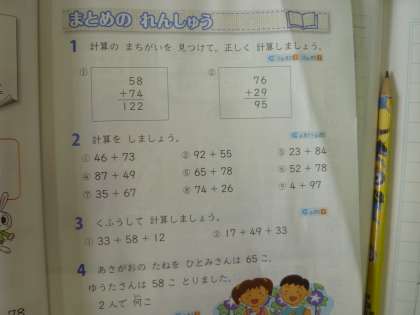 まとめの れんしゅう
1 計算の まちがいを 見つけて、正しく 計算しましょう。
① 58
+74
122
② 76
+29
95
2 計算を しましょう。
① 46 + 73 ② 92 + 55 ③ 23 + 84
④ 87 + 49 ⑤ 65 + 78 ⑥ 52 + 78
⑦ 35 + 67 ⑧ 74 + 26 ⑨ 4 + 97
3 くふうして 計算しましょう。
① 33 + 58 + 12 ② 17 + 49 + 33
4 あさがおの たねを ひとみさんは 65 こ、
ゆうたさんは 58 こ とりました。
2 人で 何こ
78